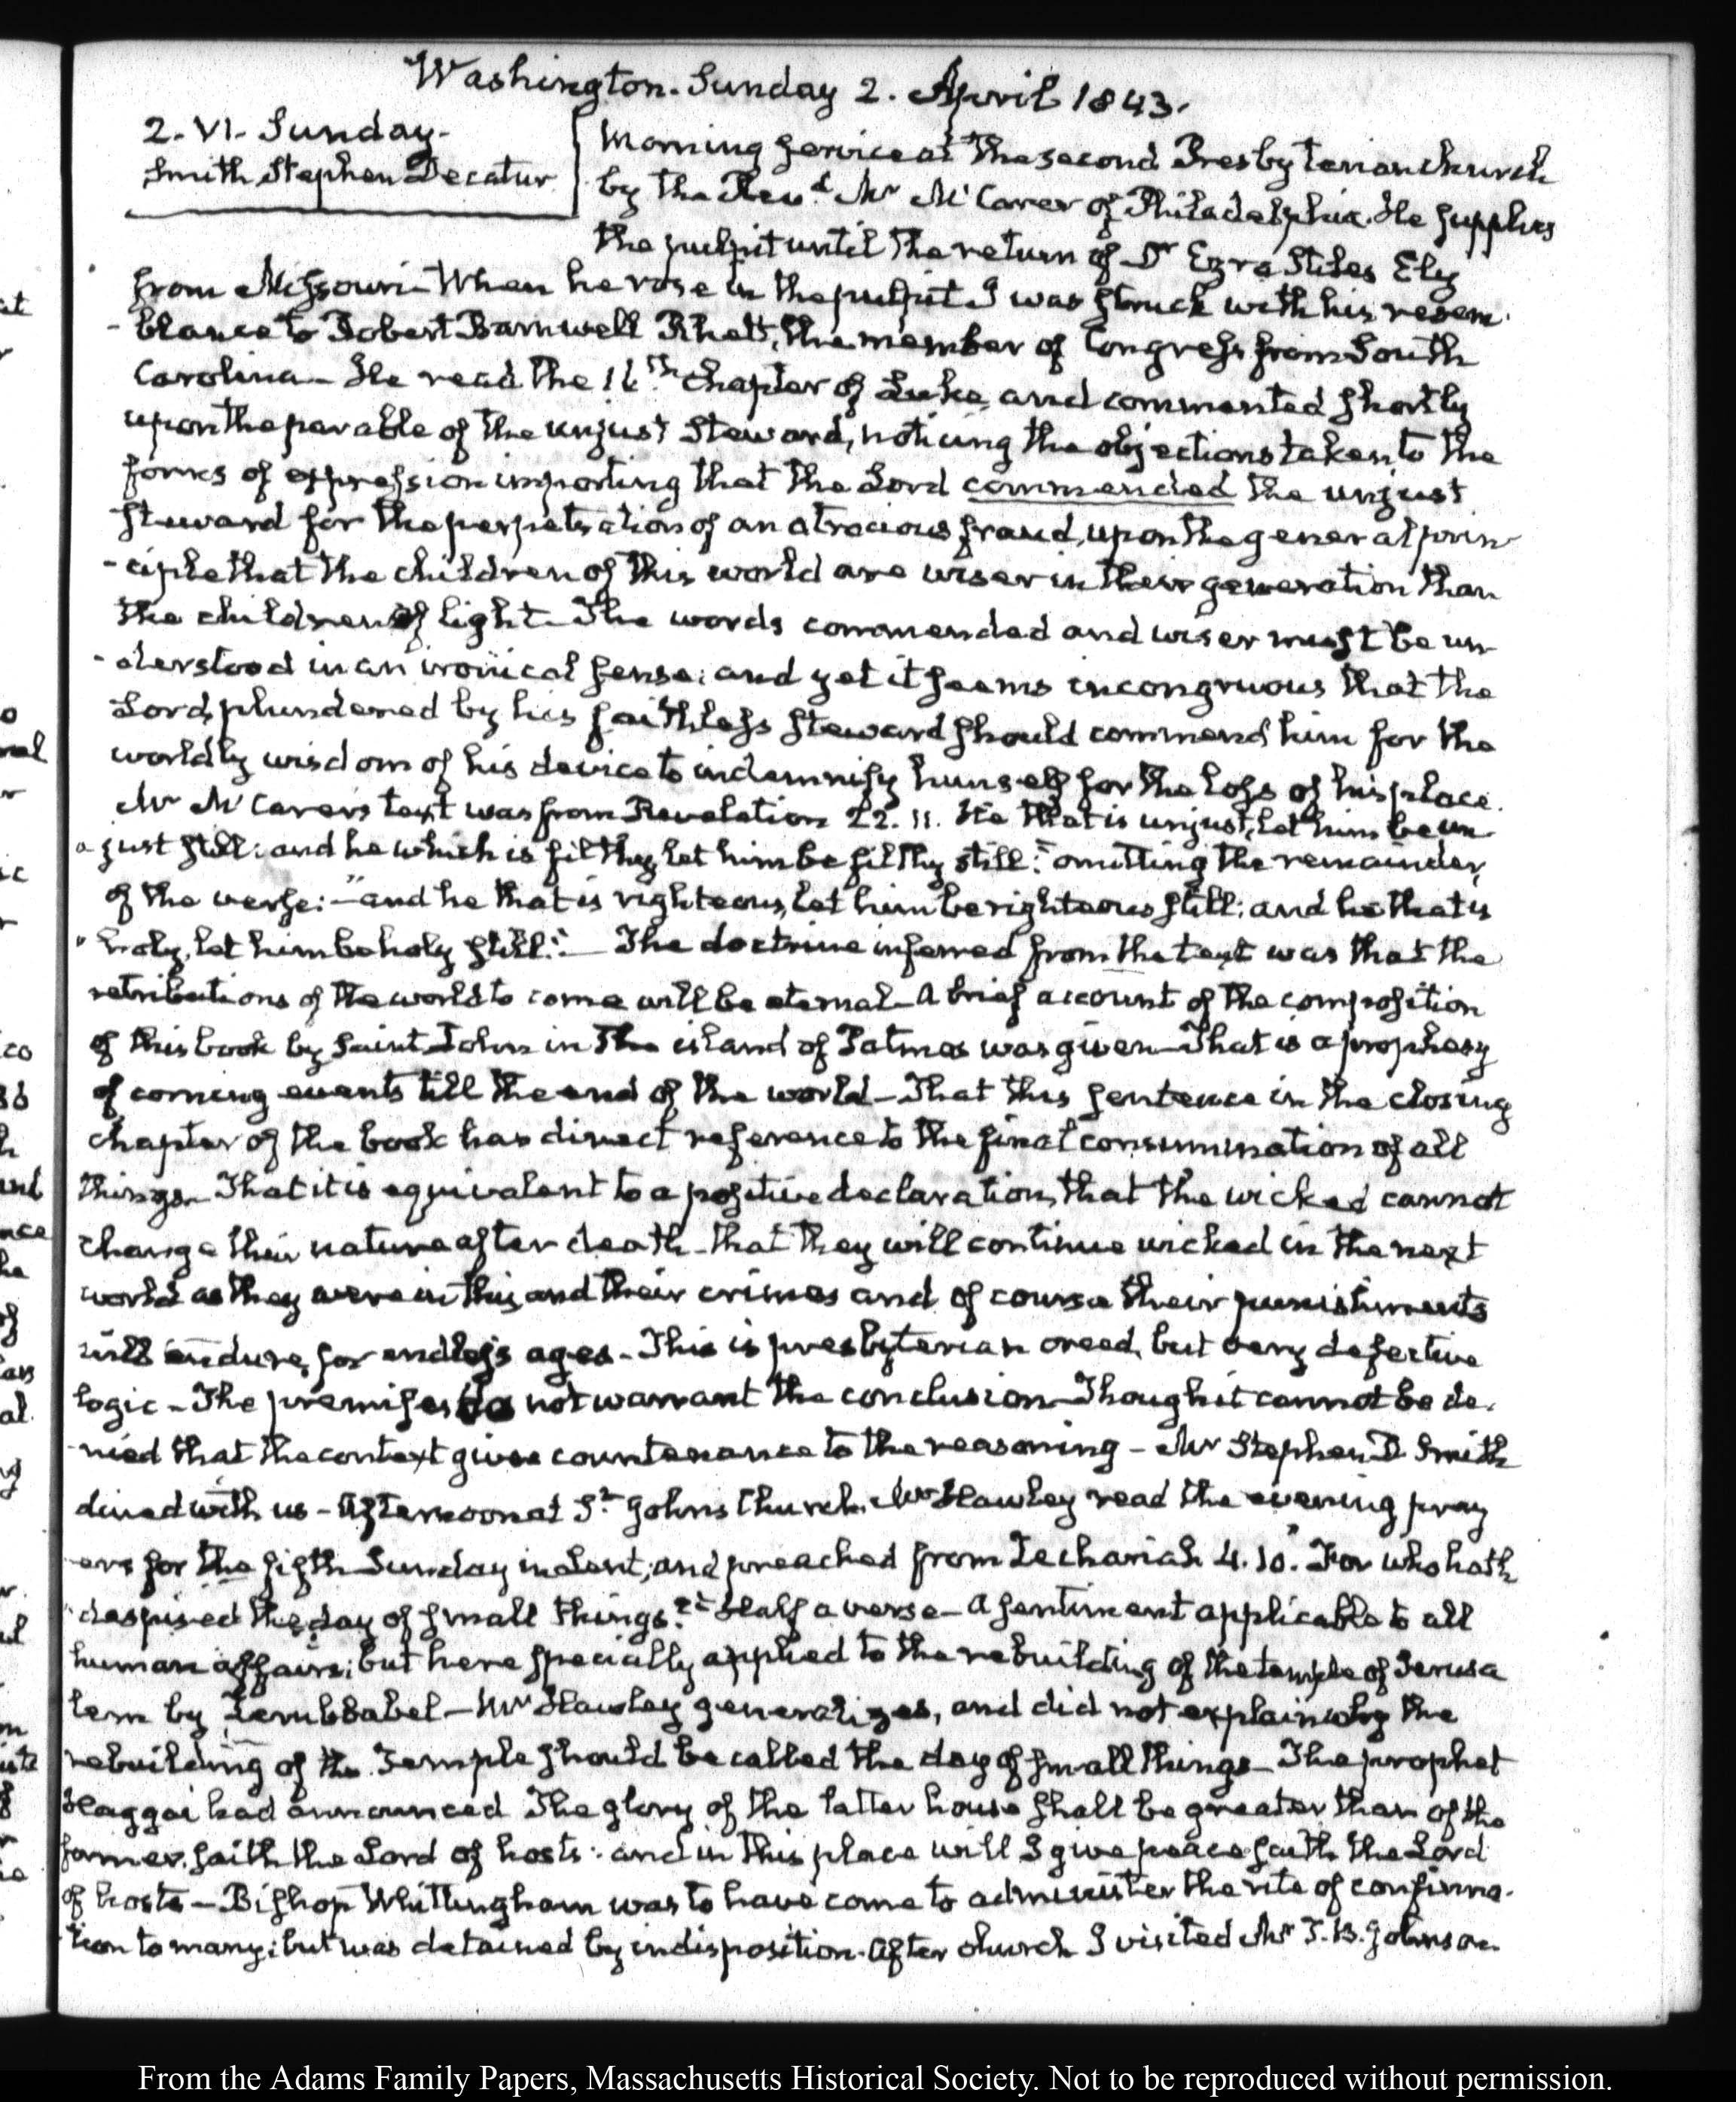 Washington. Sunday 2. April 1843.
2. VI. Sunday.
Smith Stephen Decatur
Morning service at the second Presbyterian Church
by the Revd. Mr McCarer of Philadelphia. He supplies
the pulpit until the return of Dr Ezra Stiles Ely
from Missouri— When he rose in the pulpit I was struck with his resem-
-blance to Robert Barnwell Rhett, the member of Congress from South
Carolina— He read the 16th chapter of Luke, and commented shortly
upon the parable of the unjust Steward, noticing the objections taken, to the
forms of expression importing that the Lord commended the unjust
steward for the perpetration of an atrocious fraud, upon the general prin-
-ciple that the children of this world are wiser in their generation than
the children of light— The words commended and wiser must be un-
-derstood in an ironical sense: and yet it seems incongruous that the
Lord, plundered by his faithless steward should commend him for the
worldly wisdom of his device to indemnify himself for the loss of his place.
Mr McCarer's text was from Revelation 22. 11. He that is unjust, let him be un-
"just still: and he which is filthy, let him be filthy still:" omitting the remainder,
of the verse:— "and he that is righteous, let him be righteous still: and he that is
"holy, let him be holy still."— The doctrine inferred from the text was that the
retributions of the world to come will be eternal— A brief account of the composition
of this book by Saint John in the island of Patmos was given— That is a prophesy
of coming events till the end of the world— That this sentence in the closing
chapter of the book has direct reference to the final consummation of all
things— That it is equivalent to a positive declaration, that the wicked cannot
change their nature after death— that they will continue wicked in the next
world as they were in this, and their crimes and of course their punishments
will endure, for endless ages— This is presbyterian creed, but very defective
logic— The premises do not warrant the conclusion— Though it cannot be de-
-nied that the context gives countenance to the reasoning— Mr Stephen D Smith
dined with us— Afternoon at St. Johns Church. Mr Hawley read the evening pray
-ers for the fifth Sunday in Lent; and preached from Zechariah 4. 10. "For who hath
"despised the day of small things?"— Half a verse— A sentiment applicable to all
human affairs; but here specially applied to the rebuilding of the temple of Jerusa
lem by Zerubbabel— Mr Hawley generalizes, and did not explain why the
rebuilding of the Temple should be called the day of small things— The prophet
Haggai had announced The glory of the latter house shall be greater than of the
former, saith the Lord of hosts: and in this place will I give peace saith the Lord
of hosts— Bishop Whittingham was to have come to administer the rite of confirma-
-tion to many; but was detained by indisposition. After church I visited Mr T. B. Johnson.
From the Adams Family Papers, Massachusetts Historical Society. Not to be reproduced without permission.